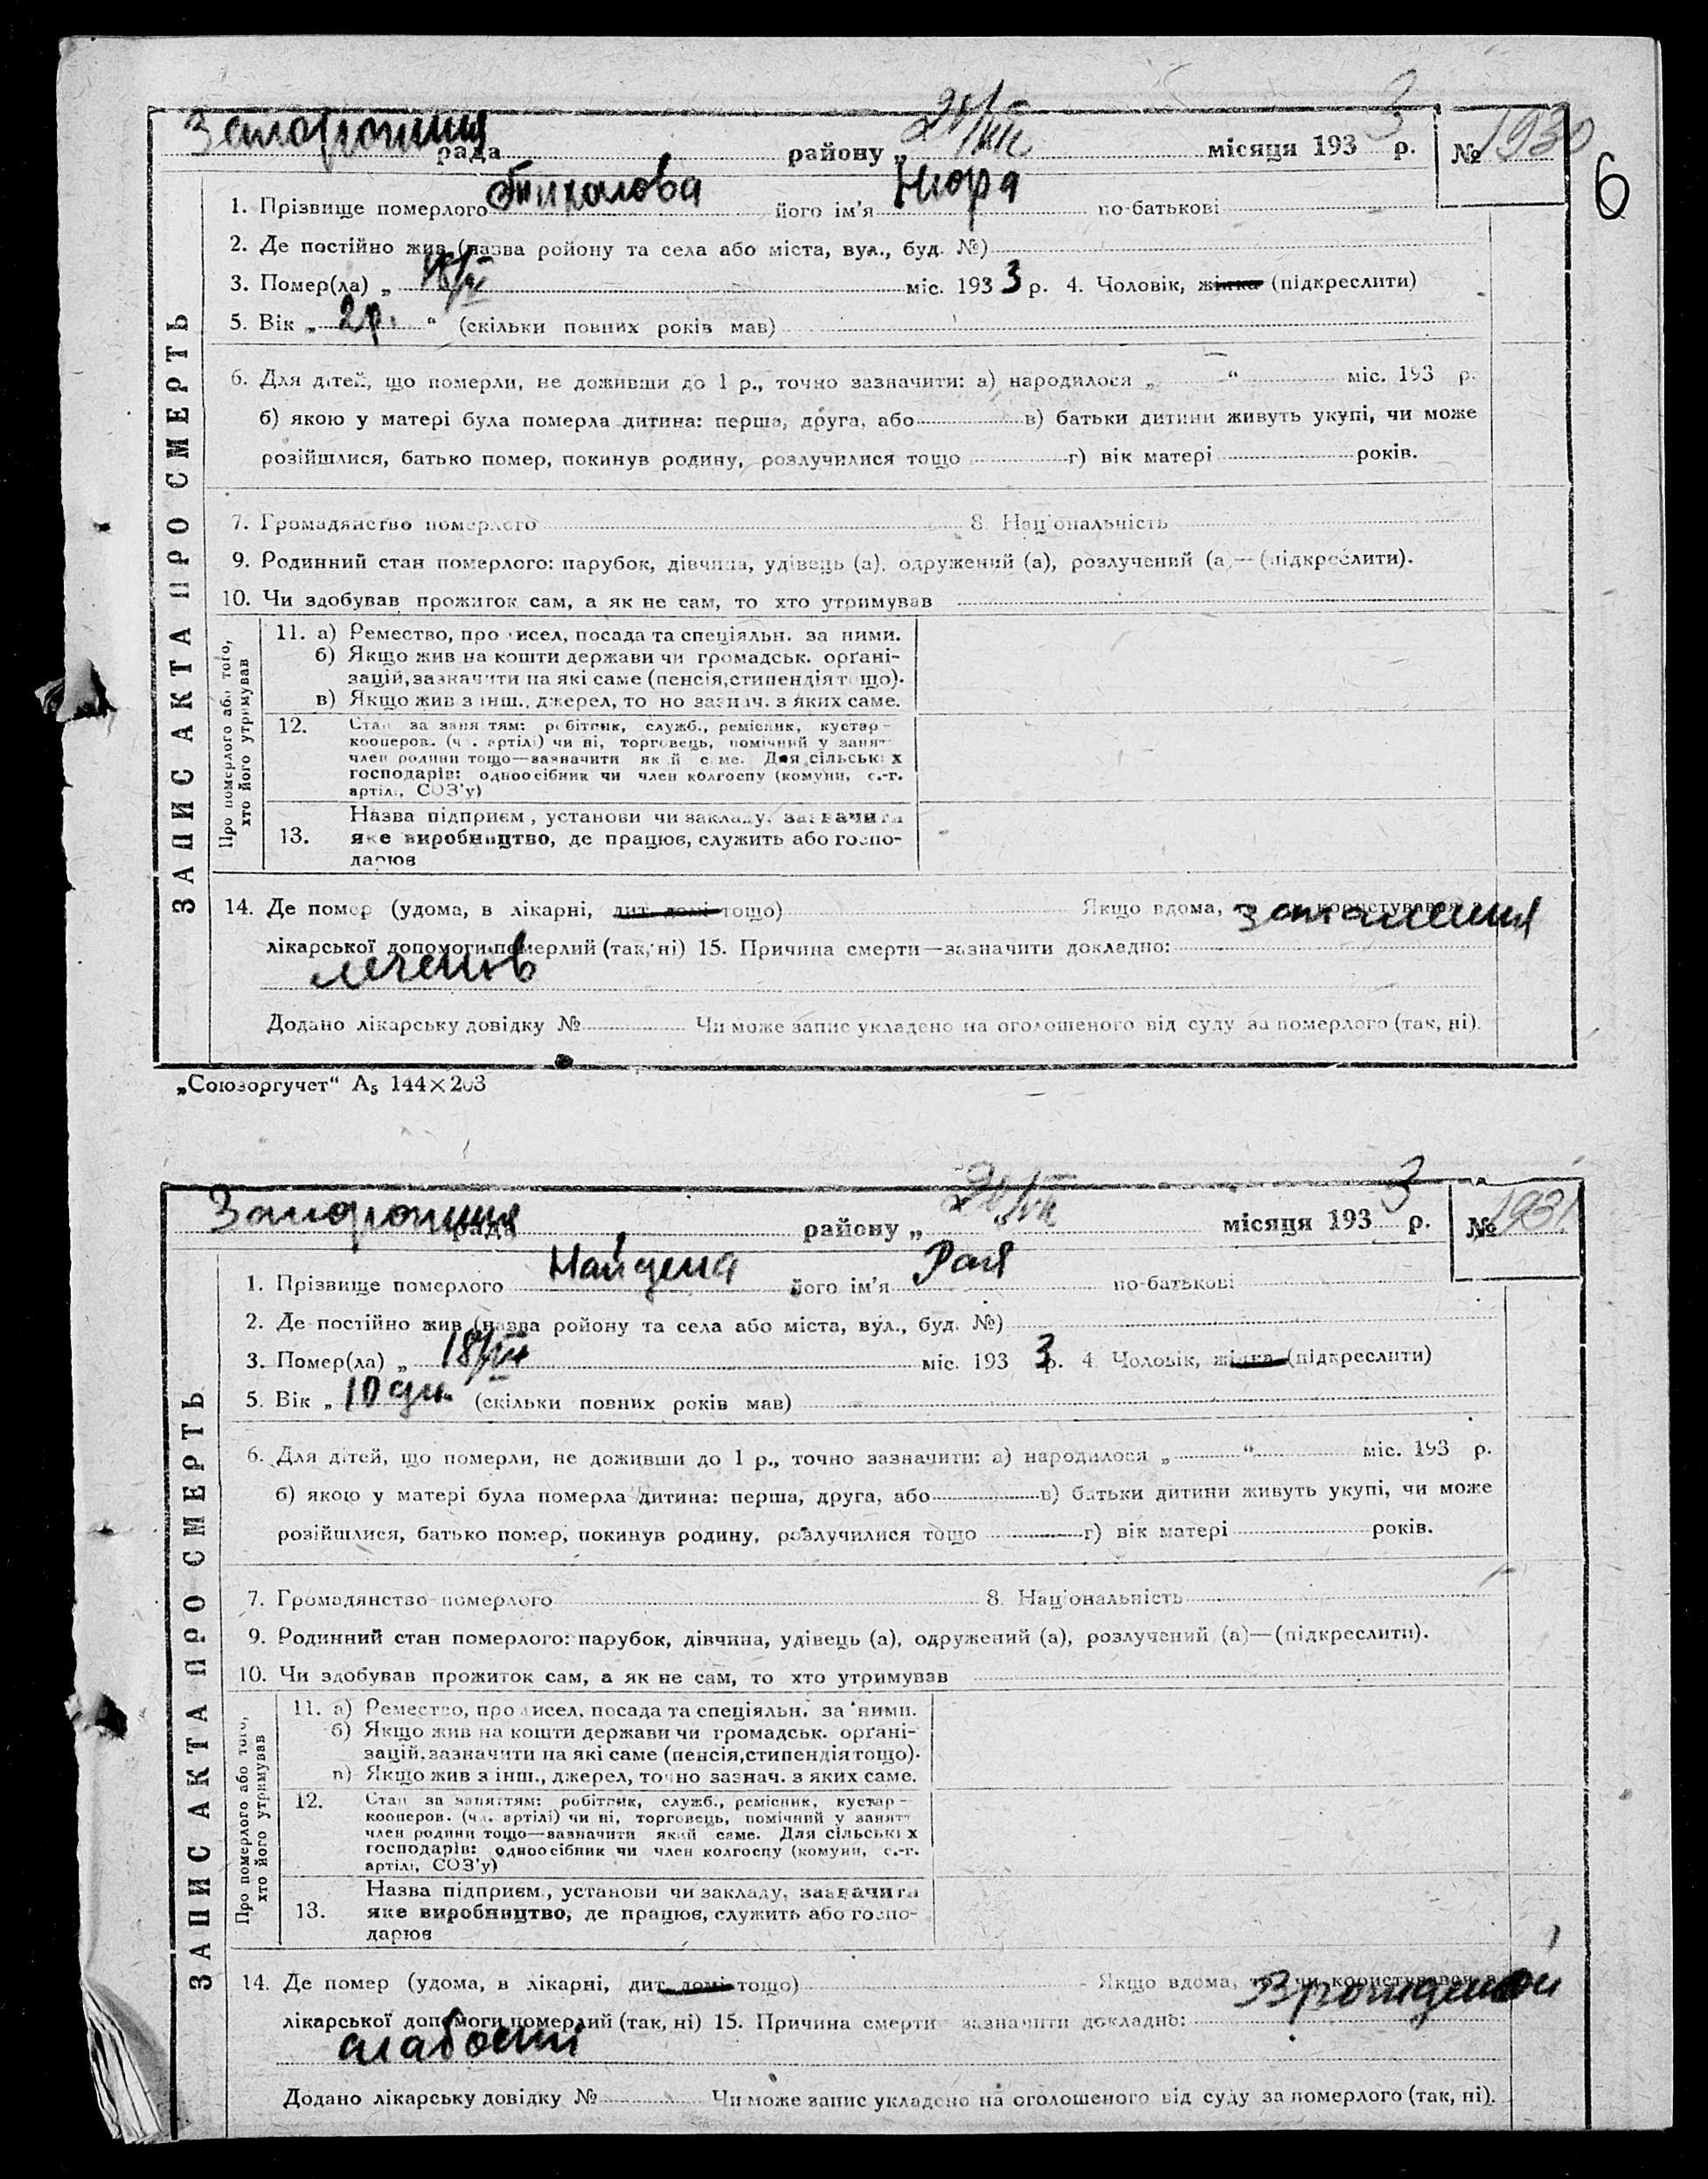 Запоріжжя рада району „ місяця 193 3 р. № 1930
6
1. Прізвище померлого його ім'я Нюра по-батькові
2. Де постійно жив (назва ройону та села або міста, вул., буд. №)
3. Помер(ла) „ міс. 193 3 р. 4. Чоловік, жінка (підкреслити)
5. Вік „ 2 р. “ (скільки повних років мав)
6. Для дітей, що померли, не доживши до 1 р., точно зазначити: а) народилося „ “ міс. 193 р.
б) якою у матері була померла дитина: перша, друга, або в) батьки дитини живуть укупі, чи може
розійшлися, батько помер, покинув родину, розлучилися тощо г) вік матері років.
7. Громадянство померлого 8. Національність
9. Родинний стан померлого: парубок, дівчина, удівець (а), одружений (а), розлучений (а)—(підкреслити).
10. Чи здобував прожиток сам, а як не сам, то хто утримував
Про померлого або того,
хто його утримував
11. а) Ремество, промисел, посада та спеціяльн. за ними.
б) Якщо жив на кошти держави чи громадськ. орґані-
зацій, зазначити на які саме (пенсія, стипендія тощо).
в) Якщо жив з інш., джерел, точно зазнач. з яких саме.
12. Стан за заняттям: робітник, служб., ремісник, кустар-
кооперов. (чл. артілі) чи ні, торговець, помічний у занят
член родини тощо—зазначити який саме. Для сільських
господарів: одноосібник чи член колгоспу (комуни, с.-г.
артілі, СОЗ'у)
13. Назва підприєм., установи чи закладу, зазначити
яке виробництво, де працює, служить або госпо-
дарює
ЗАПИС АКТА ПРО СМЕРТЬ
14. Де помер (удома, в лікарні, дит. домі тощо) Якщо вдома, користувався запаления
лікарської допомоги померлий (так, ні) 15. Причина смерти—зазначити докладно:
легенів
Додано лікарську довідку № Чи може запис укладено на оголошеного від суду за померлого (так, ні).
„Союзоргучет“ А5 144×203
Запоріжжя рада району „ місяця 193 3 р. № 1931
1. Прізвище померлого Найдена його ім'я Рая по-батькові
2. Де постійно жив (назва ройону та села або міста, вул., буд. №)
3. Помер(ла) „ міс. 193 3 р. 4 Чоловік, жінка (підкреслити)
5. Вік „ 10 дн. “ (скільки повних років мав)
6. Для дітей, що померли, не доживши до 1 р., точно зазначити: а) народилося „ “ міс. 193 р.
б) якою у матері була померла дитина: перша, друга, або в) батьки дитини живуть укупі, чи може
розійшлися, батько помер, покинув родину, розлучилися тощо г) вік матері років.
7. Громадянство померлого 8. Національність
9. Родинний стан померлого: парубок, дівчина, удівець (а), одружений (а), розлучений (а)—(підкреслити).
10. Чи здобував прожиток сам, а як не сам, то хто утримував
Про померлого або того,
хто його утримував
11. а) Ремество, промисел, посада та спеціяльн. за ними.
б) Якщо жив на кошти держави чи громадськ. орґані-
зацій, зазначити на які саме (пенсія, стипендія тощо).
в) Якщо жив з інш., джерел, точно зазнач. з яких саме.
12. Стан за заняттям: робітник, служб., ремісник, кустар-
кооперов. (чл. артілі) чи ні, торговець, помічний у занят
член родини тощо—зазначити який саме. Для сільських
господарів: одноосібник чи член колгоспу (комуни, с.-г.
артілі, СОЗ'у)
13. Назва підприєм., установи чи закладу, зазначити
яке виробництво, де працює, служить або госпо-
дарює
ЗАПИС АКТА ПРО СМЕРТЬ
14. Де помер (удома, в лікарні, дит. домі тощо) Якщо вдома, чи користувався Врожденой
лікарської допомоги померлий (так, ні) 15. Причина смерти зазначити докладно:
слабости
Додано лікарську довідку № Чи може запис укладено на оголошеного від суду за померлого (так, ні).